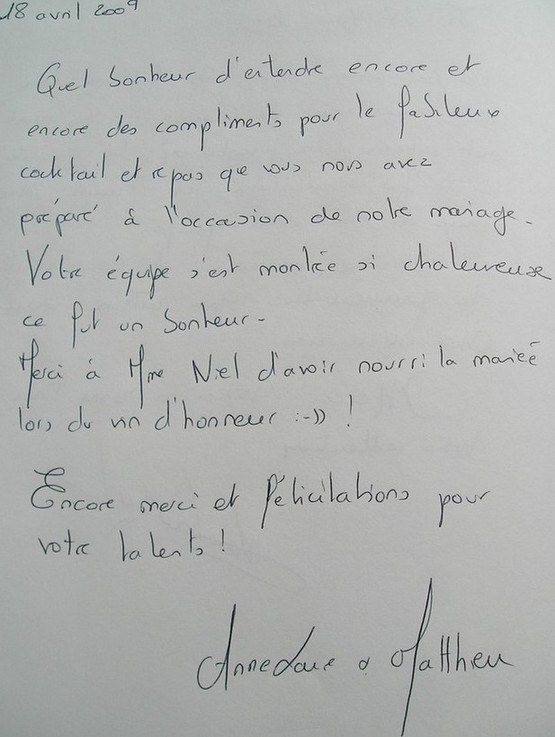 18 avril 2009
Quel bonheur d'entendre encore et
encore des compliments pour le fabuleux
cocktail et repas que vous nous avez
préparé à l'occasion de notre mariage.
Votre équipe s'est montrée si chaleureuse
ce fut un bonheur.
Merci à Mme Niel d'avoir nourri la mariée
lors du vin d'honneur :-)) !
Encore merci et félicitations pour
votre talents !
Anne Laure & Matthieu